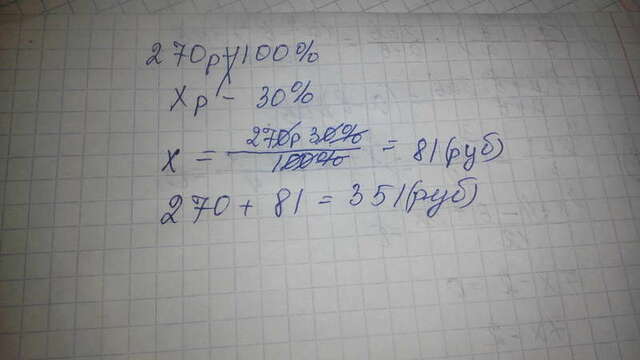 270р-100%
Хр - 30%
х = 270р 30% / 100% = 81(руб)
270 + 81 = 351(руб)